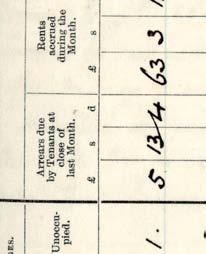 GES.
Unoccu-
pied.
Arrears due
by Tenants at
close of
last Month.
Rents
accrued
during the
Month.
£ s d £ s
1. 5 13 4 63 3